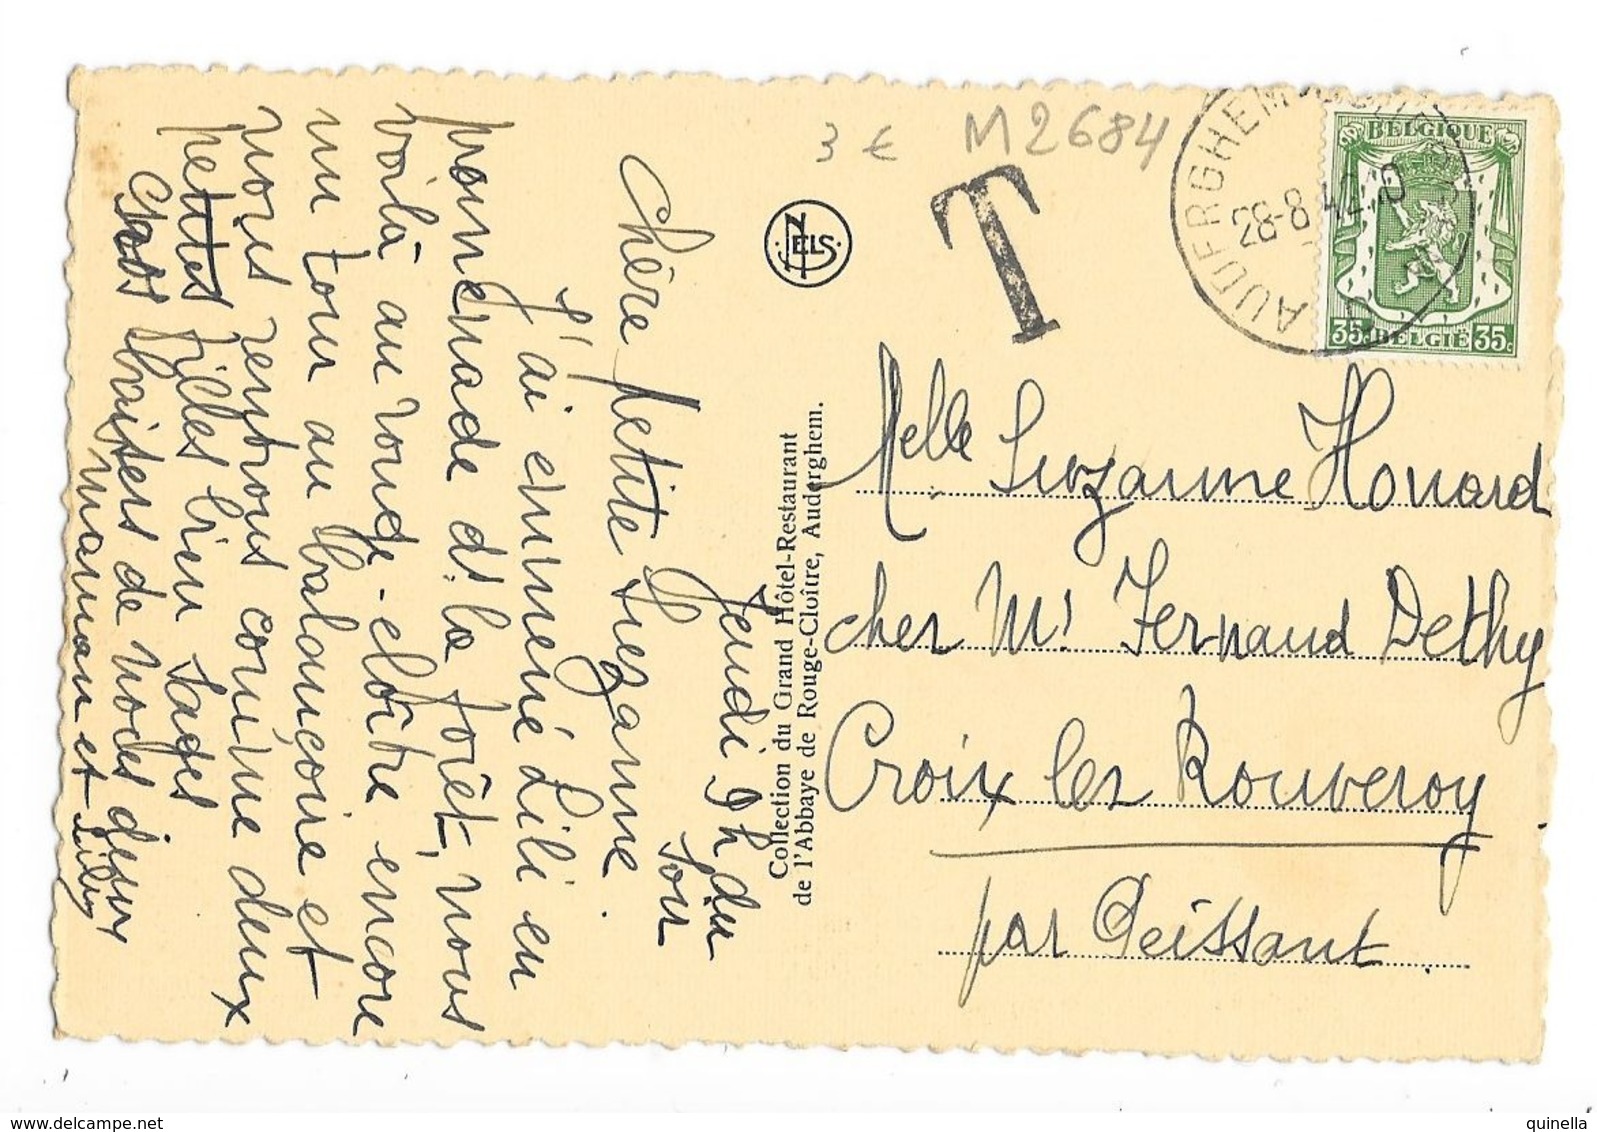 3 € M2684
T
AUDERGHEM
28-8 42
BELGIQUE
35c BELGIË 35c
NELS
Jeudi 9h du
soir
Chère petite Suzanne.
J'ai emmené Lili en
promenade ds la forêt, nous
voilà au rouge-cloître encore
un tour au balançoire et
nous rentrons comme deux
petites filles bien sages
Gros baisers de nous deux
maman et Lily
Collection du Grand Hôtel-Restaurant
de l'Abbaye de Rouge-Cloître, Auderghem.
Melle Suzanne Houard
chez Mr Fernand Dethy
Croix lez Rouveroy
par Peissant.
delcampe.net
quinella